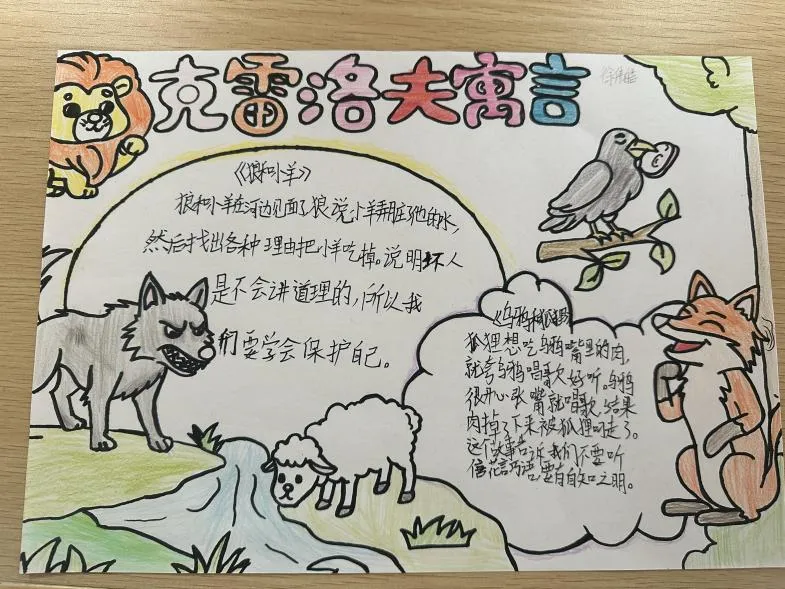 克雷洛夫寓言
《狼和小羊》
狼和小羊在河边见面了狼说小羊弄脏了他的水,
然后找出各种理由把小羊吃掉。说明坏人
是不会讲道理的,所以我
们要学会保护自己。
《乌鸦和狐狸》
狐狸想吃乌鸦嘴里的肉,
就夸乌鸦唱歌好听。乌鸦
很开心张嘴就唱歌,结果
肉掉了下来被狐狸叼走了。
这个故事告诉我们不要听
信花言巧语,要有自知之明。